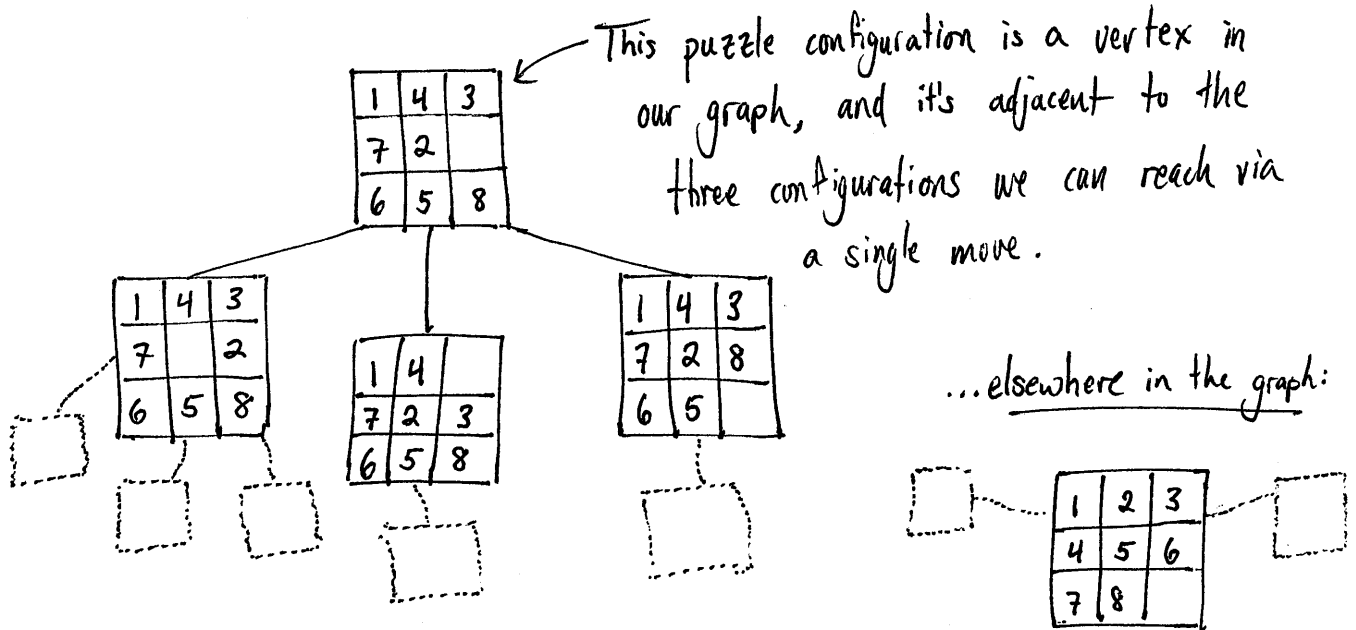 This puzzle configuration is a vertex in
our graph, and it's adjacent to the
three configurations we can reach via
a single move.
1 4 3
7 2
6 5 8
1 4 3
7 2
6 5 8
1 4
7 2 3
6 5 8
1 4 3
7 2 8
6 5
...elsewhere in the graph:
1 2 3
4 5 6
7 8